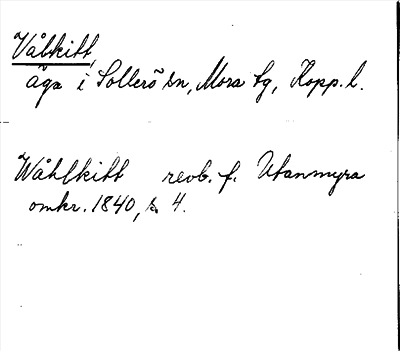 Våbkitt,
äga i Sollerö sn, Mora tg, Kopp. l.
Wåhlkitt revb. f. Utanmyra
omkr. 1840, s. 4.